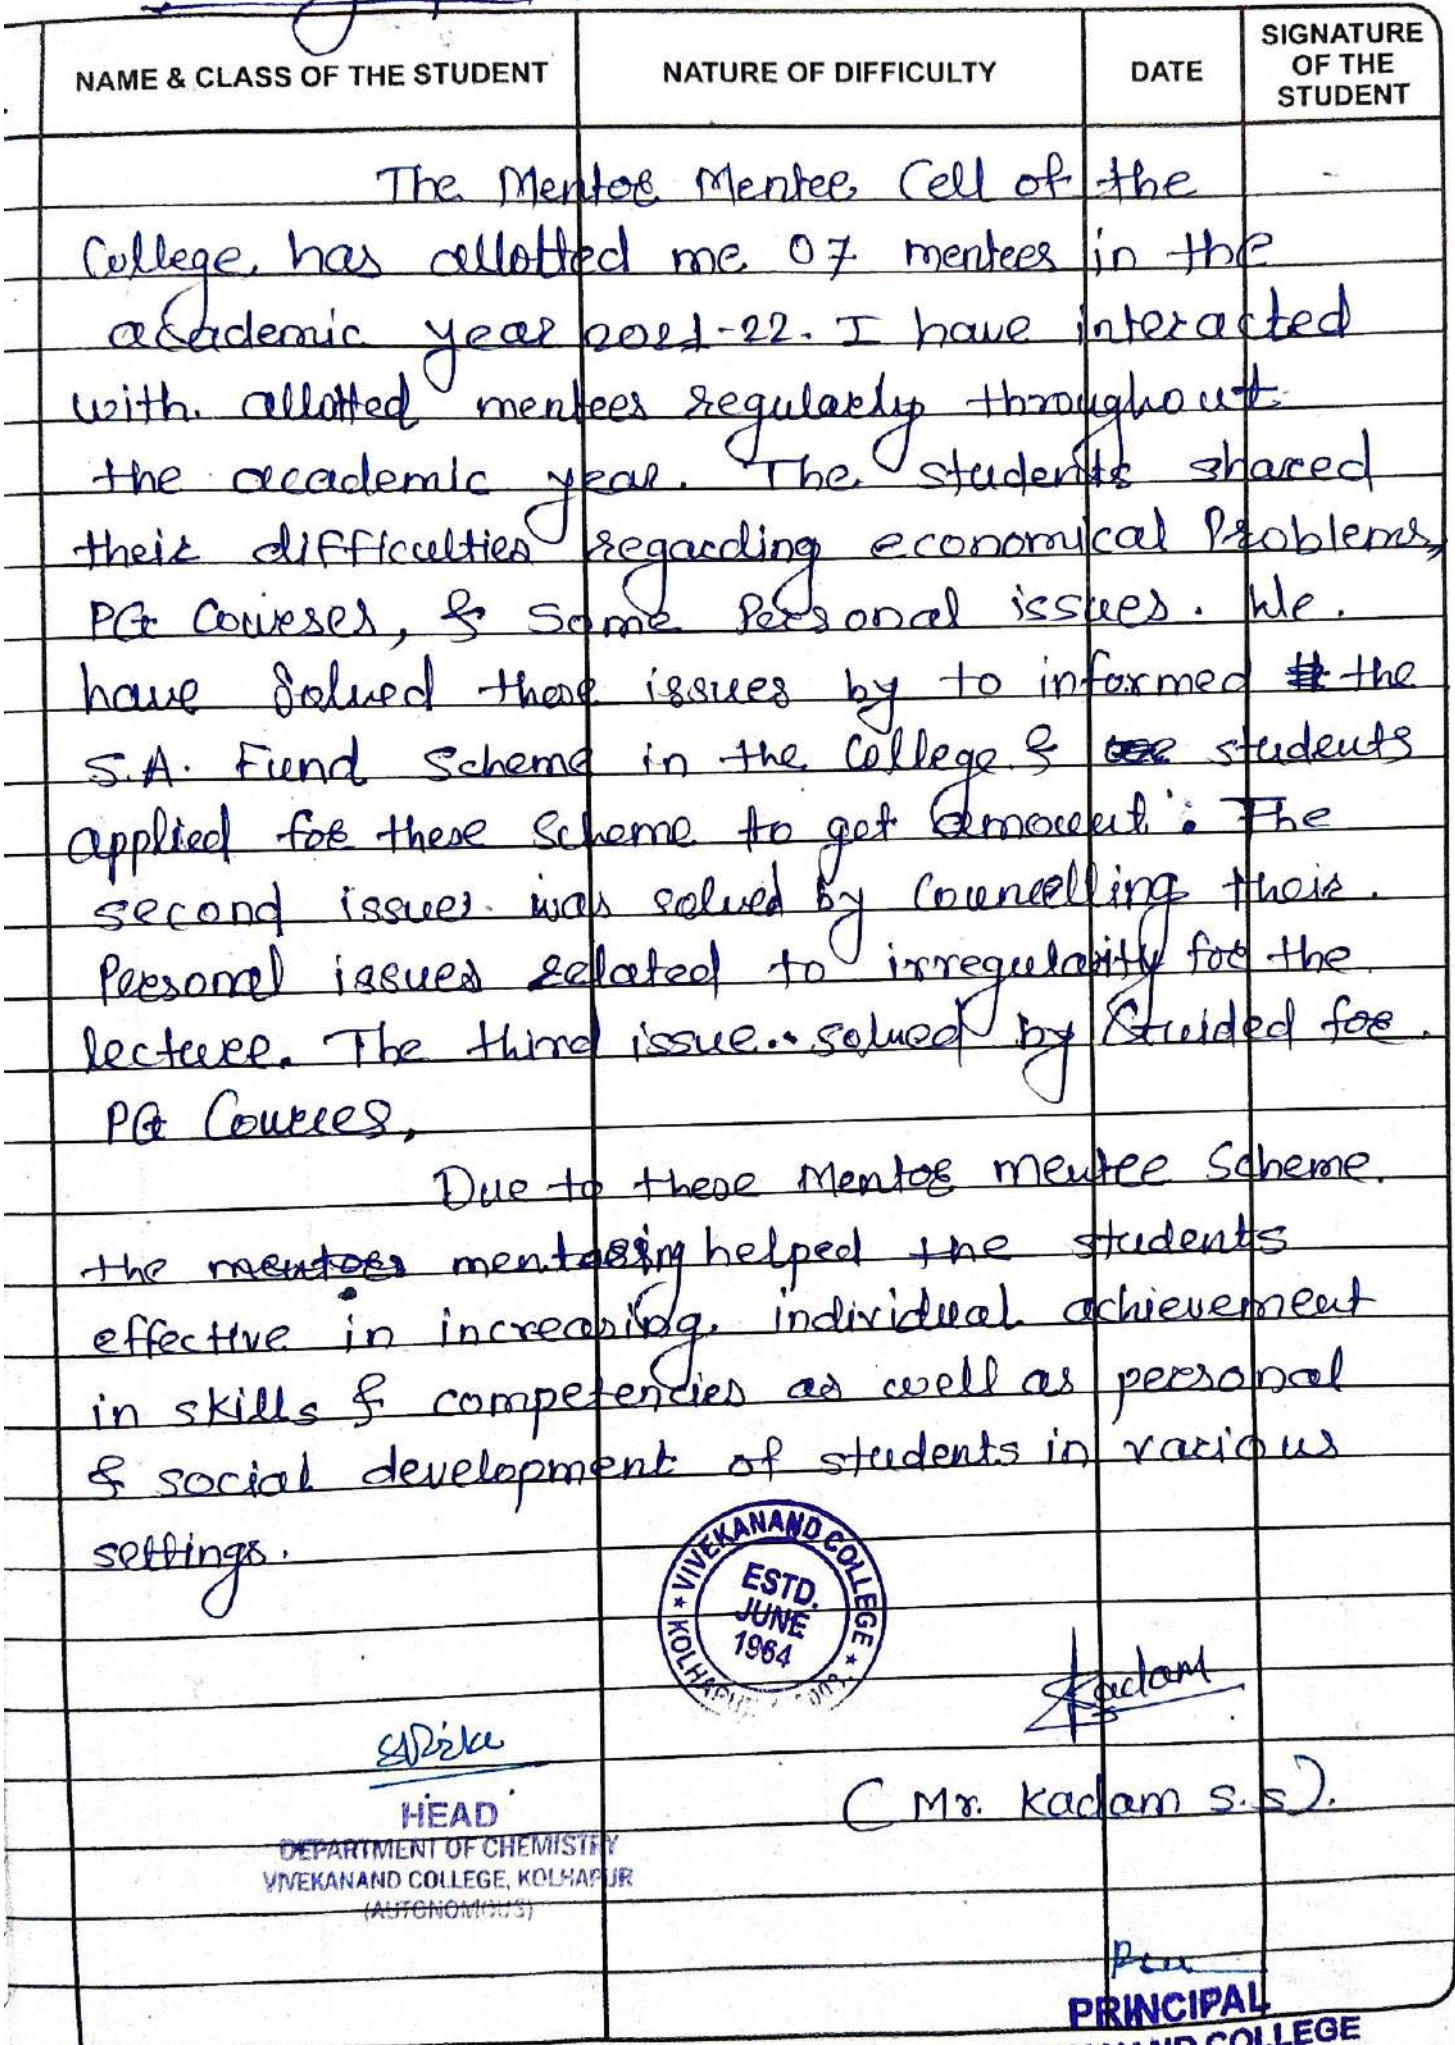 NAME & CLASS OF THE STUDENT
NATURE OF DIFFICULTY
DATE
SIGNATURE
OF THE
STUDENT
The Mentor Mentee Cell of the
College has allotted me 07 mentees in the
academic year 2021-22. I have interacted
with allotted mentees regularly throughout
the academic year. The students shared
their difficulties regarding economical Problems,
PG Courses, & Some Personal issues. We
have Solved these issues by to informed the
S.A. Fund Scheme in the College & students
applied for these Scheme to get amount. The
second issues was solved by Councelling their
Personal issues related to irregularity for the
lecture. The third issue solved by Guided for
PG Cources,
Due to these Mentor mentee Scheme.
the mentoring helped the students
effective in increasing individual achievement
in skills & competencies as well as personal
& social development of students in various
settings.
VIVEKANAND COLLEGE
ESTD.
JUNE
1964
Kadam
(Mr. Kadam S.S).
HEAD
DEPARTMENT OF CHEMISTRY
VIVEKANAND COLLEGE, KOLHAPUR
(AUTONOMOUS)
PRINCIPAL
COLLEGE